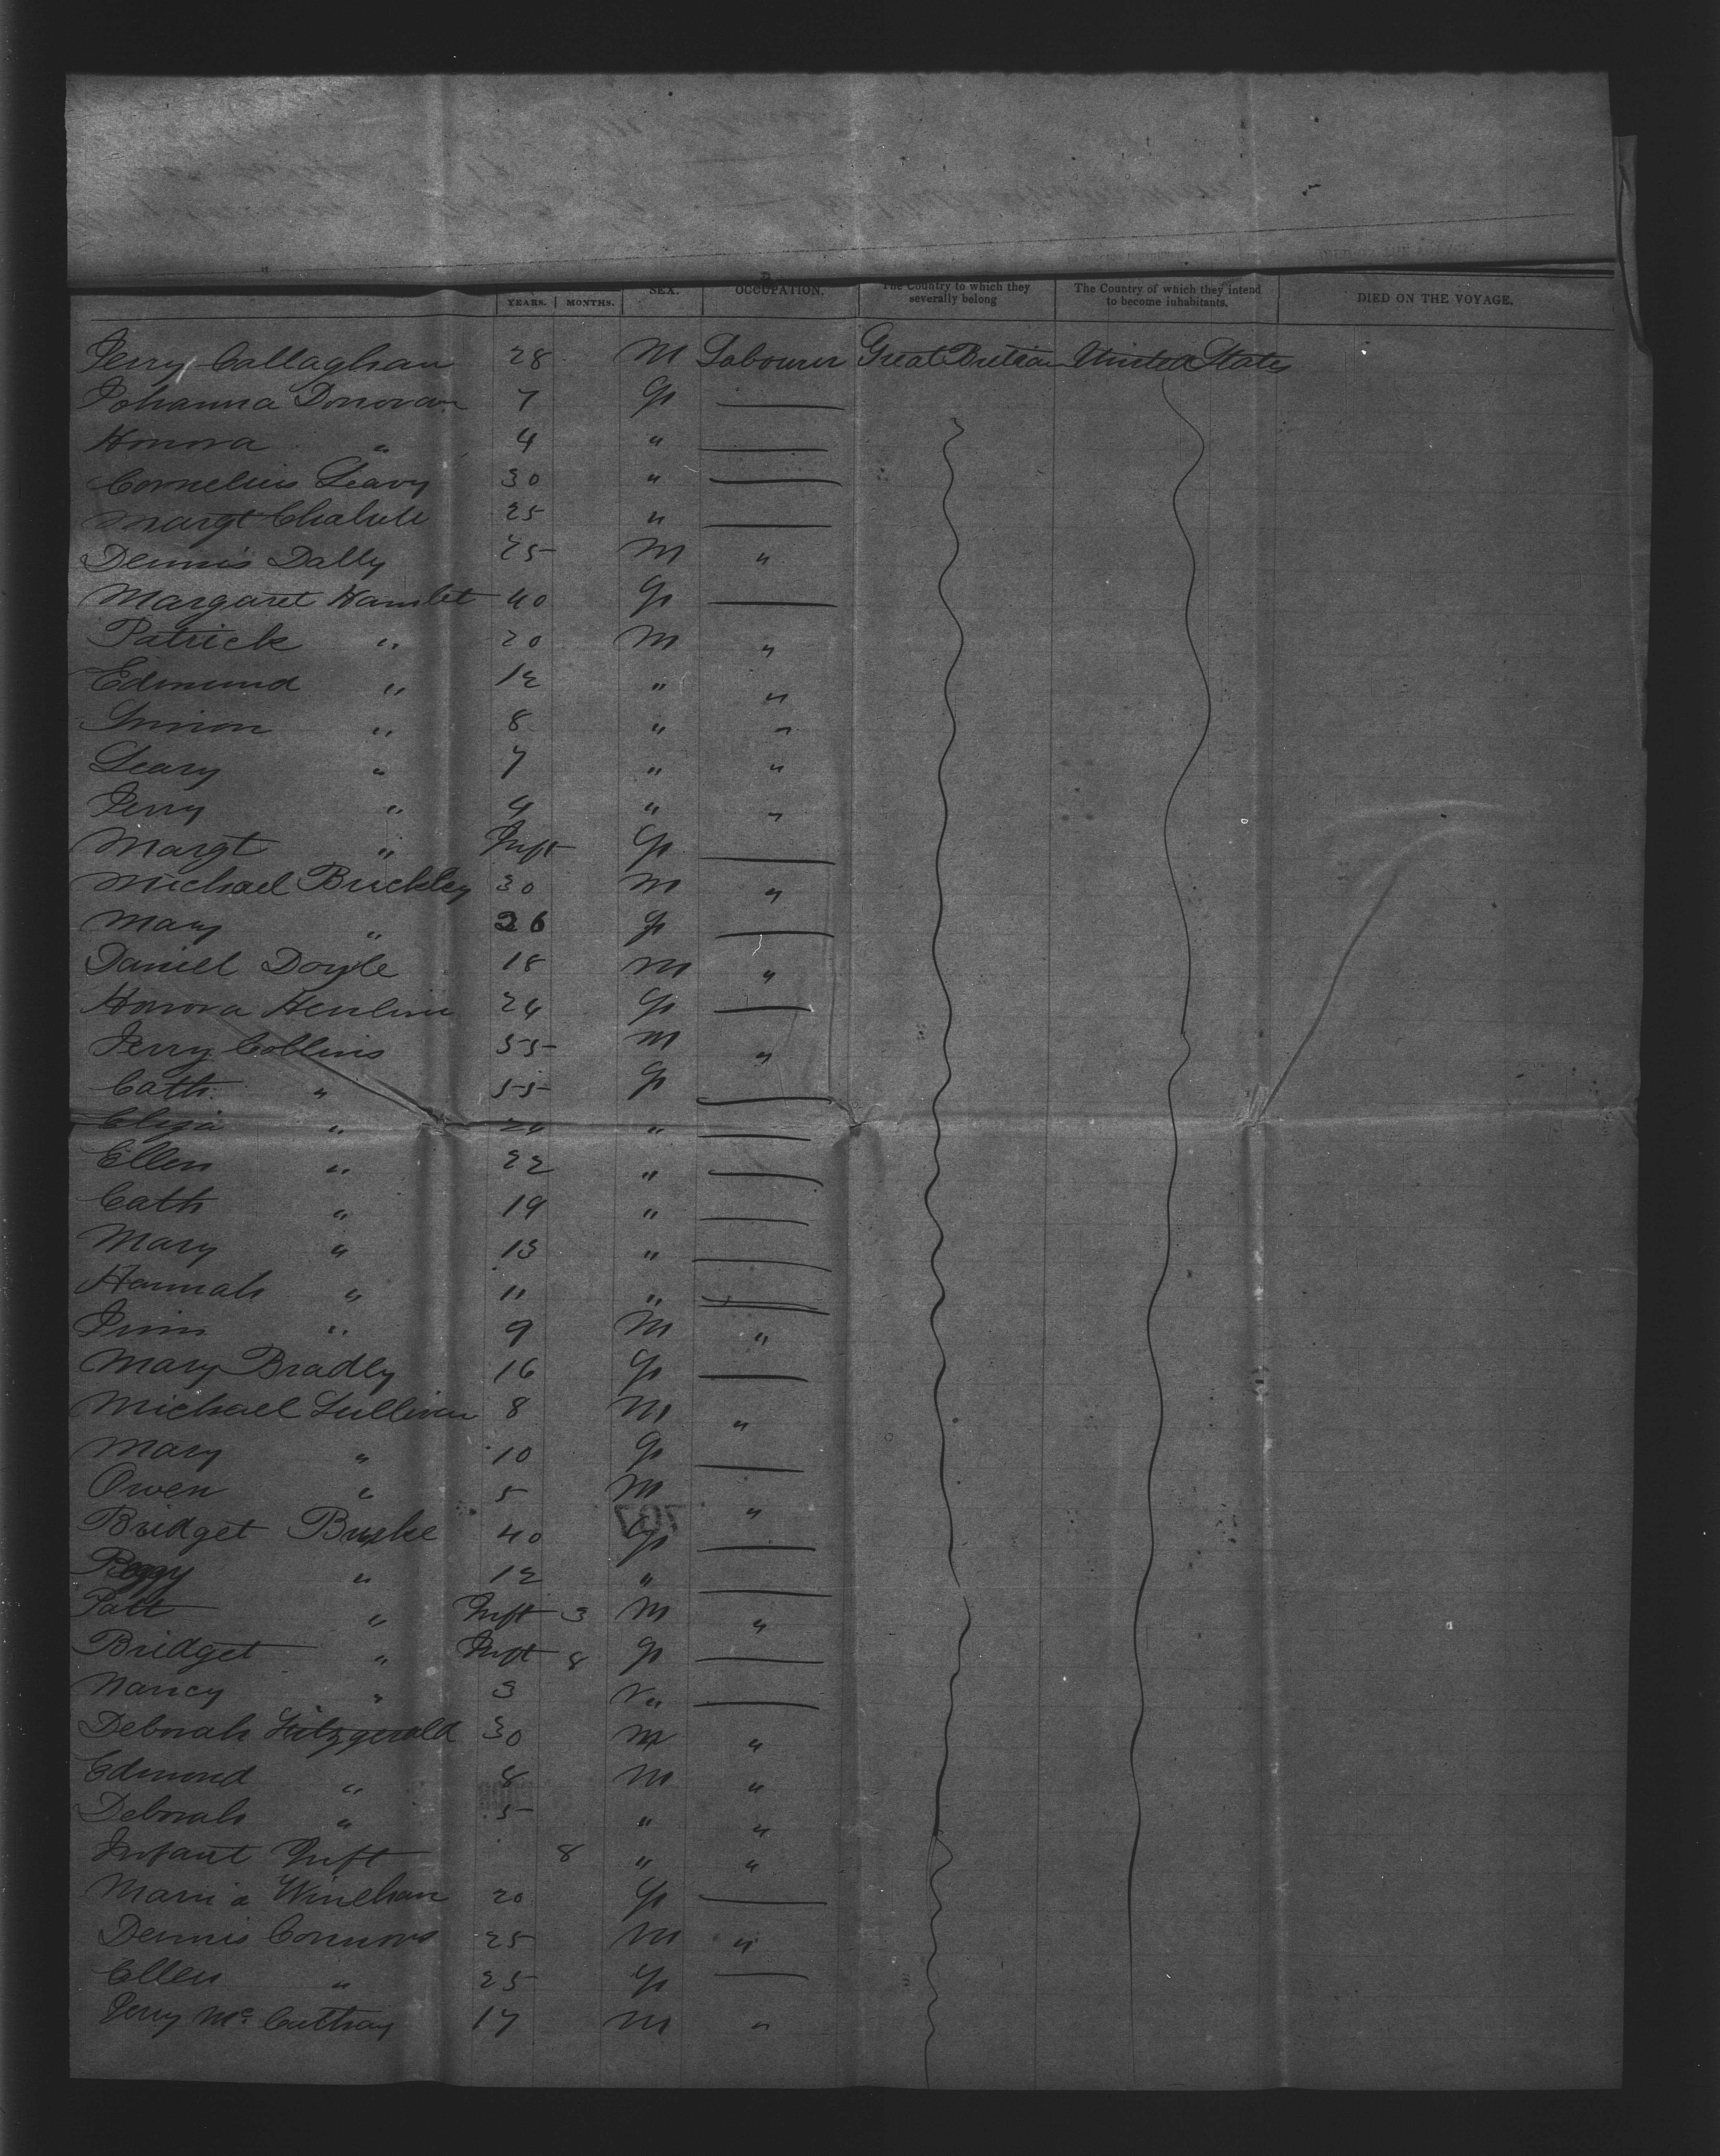 YEARS. MONTHS. SEX. OCCUPATION. The Country to which they severally belong The Country of which they intend to become inhabitants. DIED ON THE VOYAGE.
Jerry Callaghan 28 M Labourer Great Britian United States
Johanna Donovan 7 F ——
Honora " 4 " ——
Cornelius Leary 30 " ——
Margt 25 " ——
Dennis Dally 25 M "
Margaret Hamlet 40 F ——
Patrick " 20 M "
Edmund " 12 " "
Simon " 8 " "
Leary " 7 " "
Jerry " 4 " "
Margt " Inft F ——
Michael Buckley 30 M "
Mary " 26 F ——
Daniel Doyle 18 M "
Honora 24 F ——
Jerry Collins 55 M "
Cath " 55 F ——
Eliza " 24 " ——
Ellen " 22 " ——
Cath " 19 " ——
Mary " 13 " ——
Hannah " 11 " ——
Jim " 9 M "
Mary Bradly 16 F ——
Michael Sullivan 8 M "
Mary " 10 F ——
Owen " 5 M "
Bridget Burke 40 F ——
Peggy " 12 " ——
Patt " Inft 3 M "
Bridget " Inft 8 F ——
Nancy " 3 " ——
Deborah Fitzgerald 30 M "
Edmond " 8 M "
Deborah " 5 " "
Infant Inft 8 " "
Maria 20 F ——
Dennis Connors 25 M "
Ellen " 25 F ——
Jerry Mc Cathay 17 M "